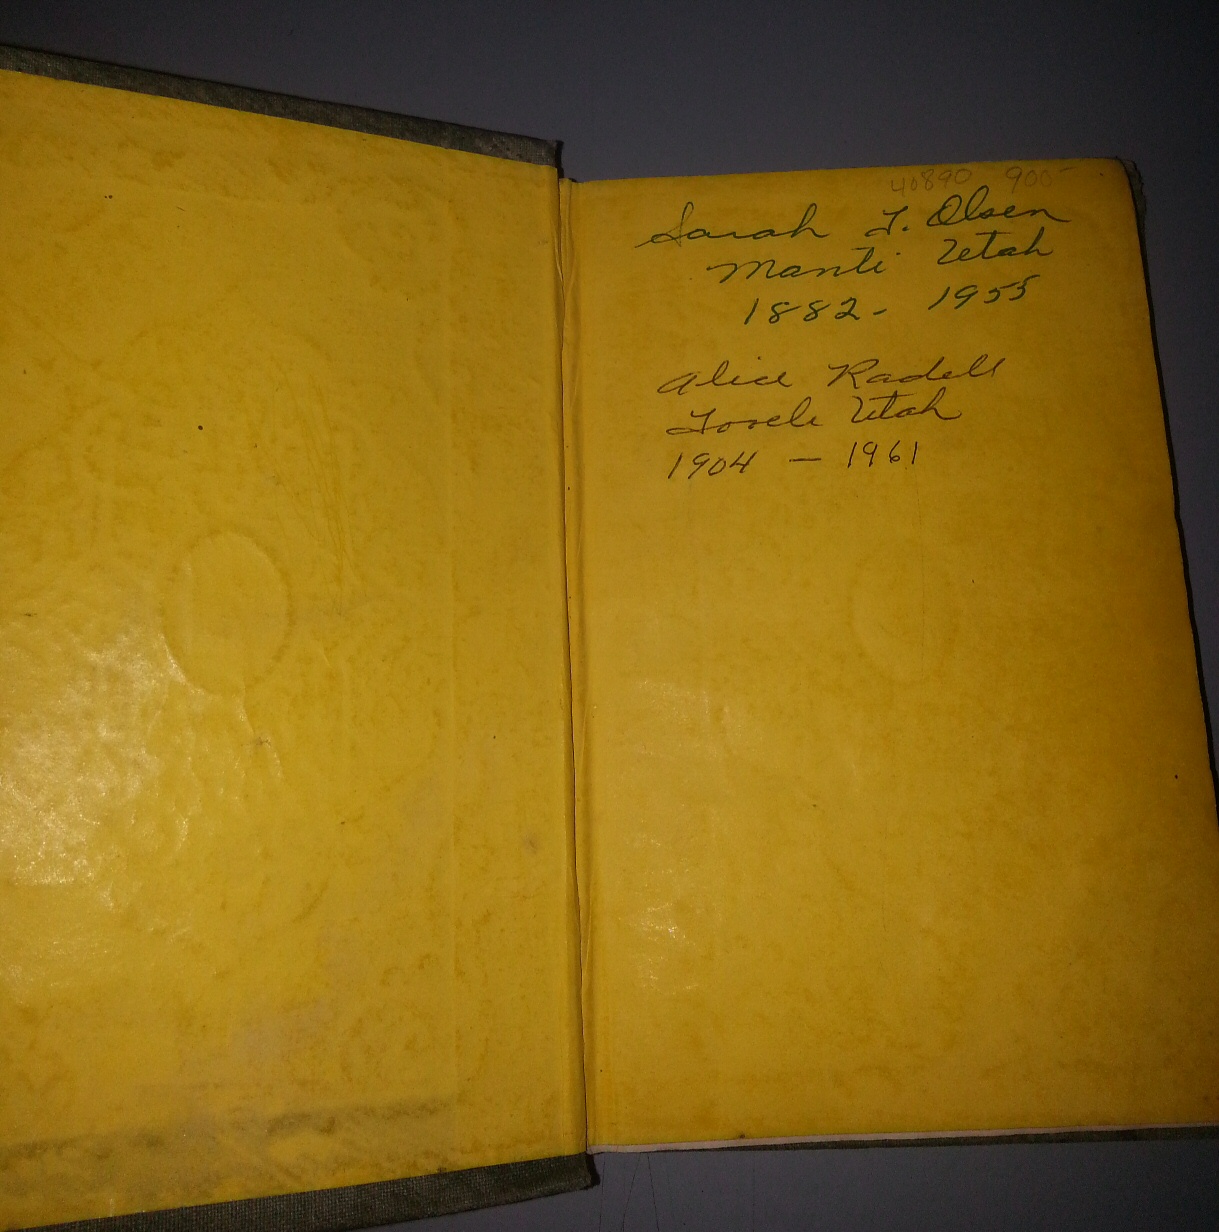 40890 900-
Sarah T. Olsen
Manti Utah
1882 - 1955
Alice Radell
Tooele Utah
1904 — 1961